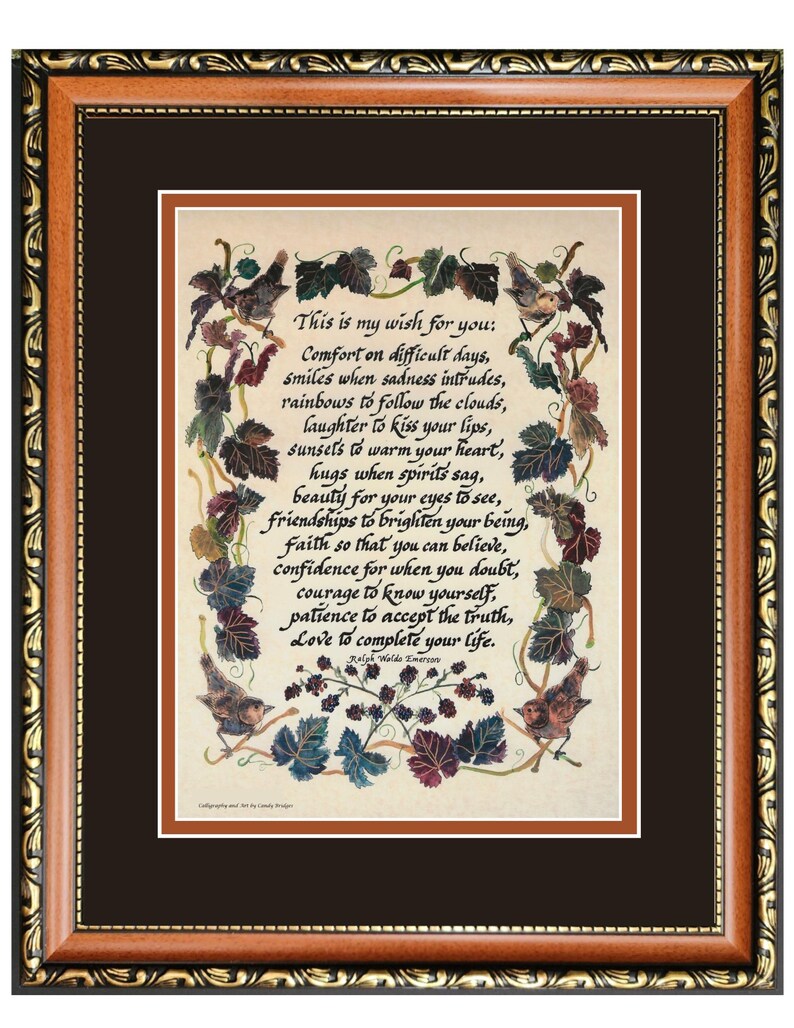 This is my wish for you:
Comfort on difficult days,
smiles when sadness intrudes,
rainbows to follow the clouds,
laughter to kiss your lips,
sunsets to warm your heart,
hugs when spirits sag,
beauty for your eyes to see,
friendships to brighten your being,
faith so that you can believe,
confidence for when you doubt,
courage to know yourself,
patience to accept the truth,
Love to complete your life.
Ralph Waldo Emerson
Calligraphy and Art by Candy Bridges